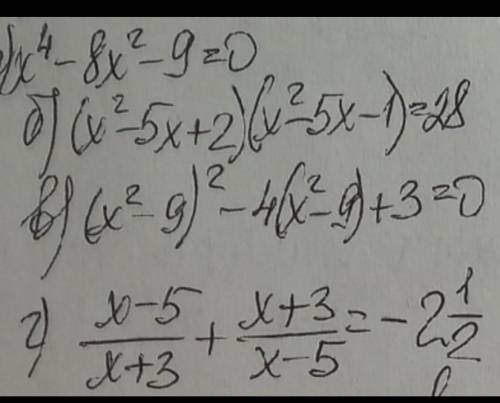 а) x⁴ - 8x² - 9 = 0
б) (x² - 5x + 2)(x² - 5x - 1) = 28
в) (x² - 9)² - 4(x² - 9) + 3 = 0
г) (x - 5)/(x + 3) + (x + 3)/(x - 5) = -2 1/2